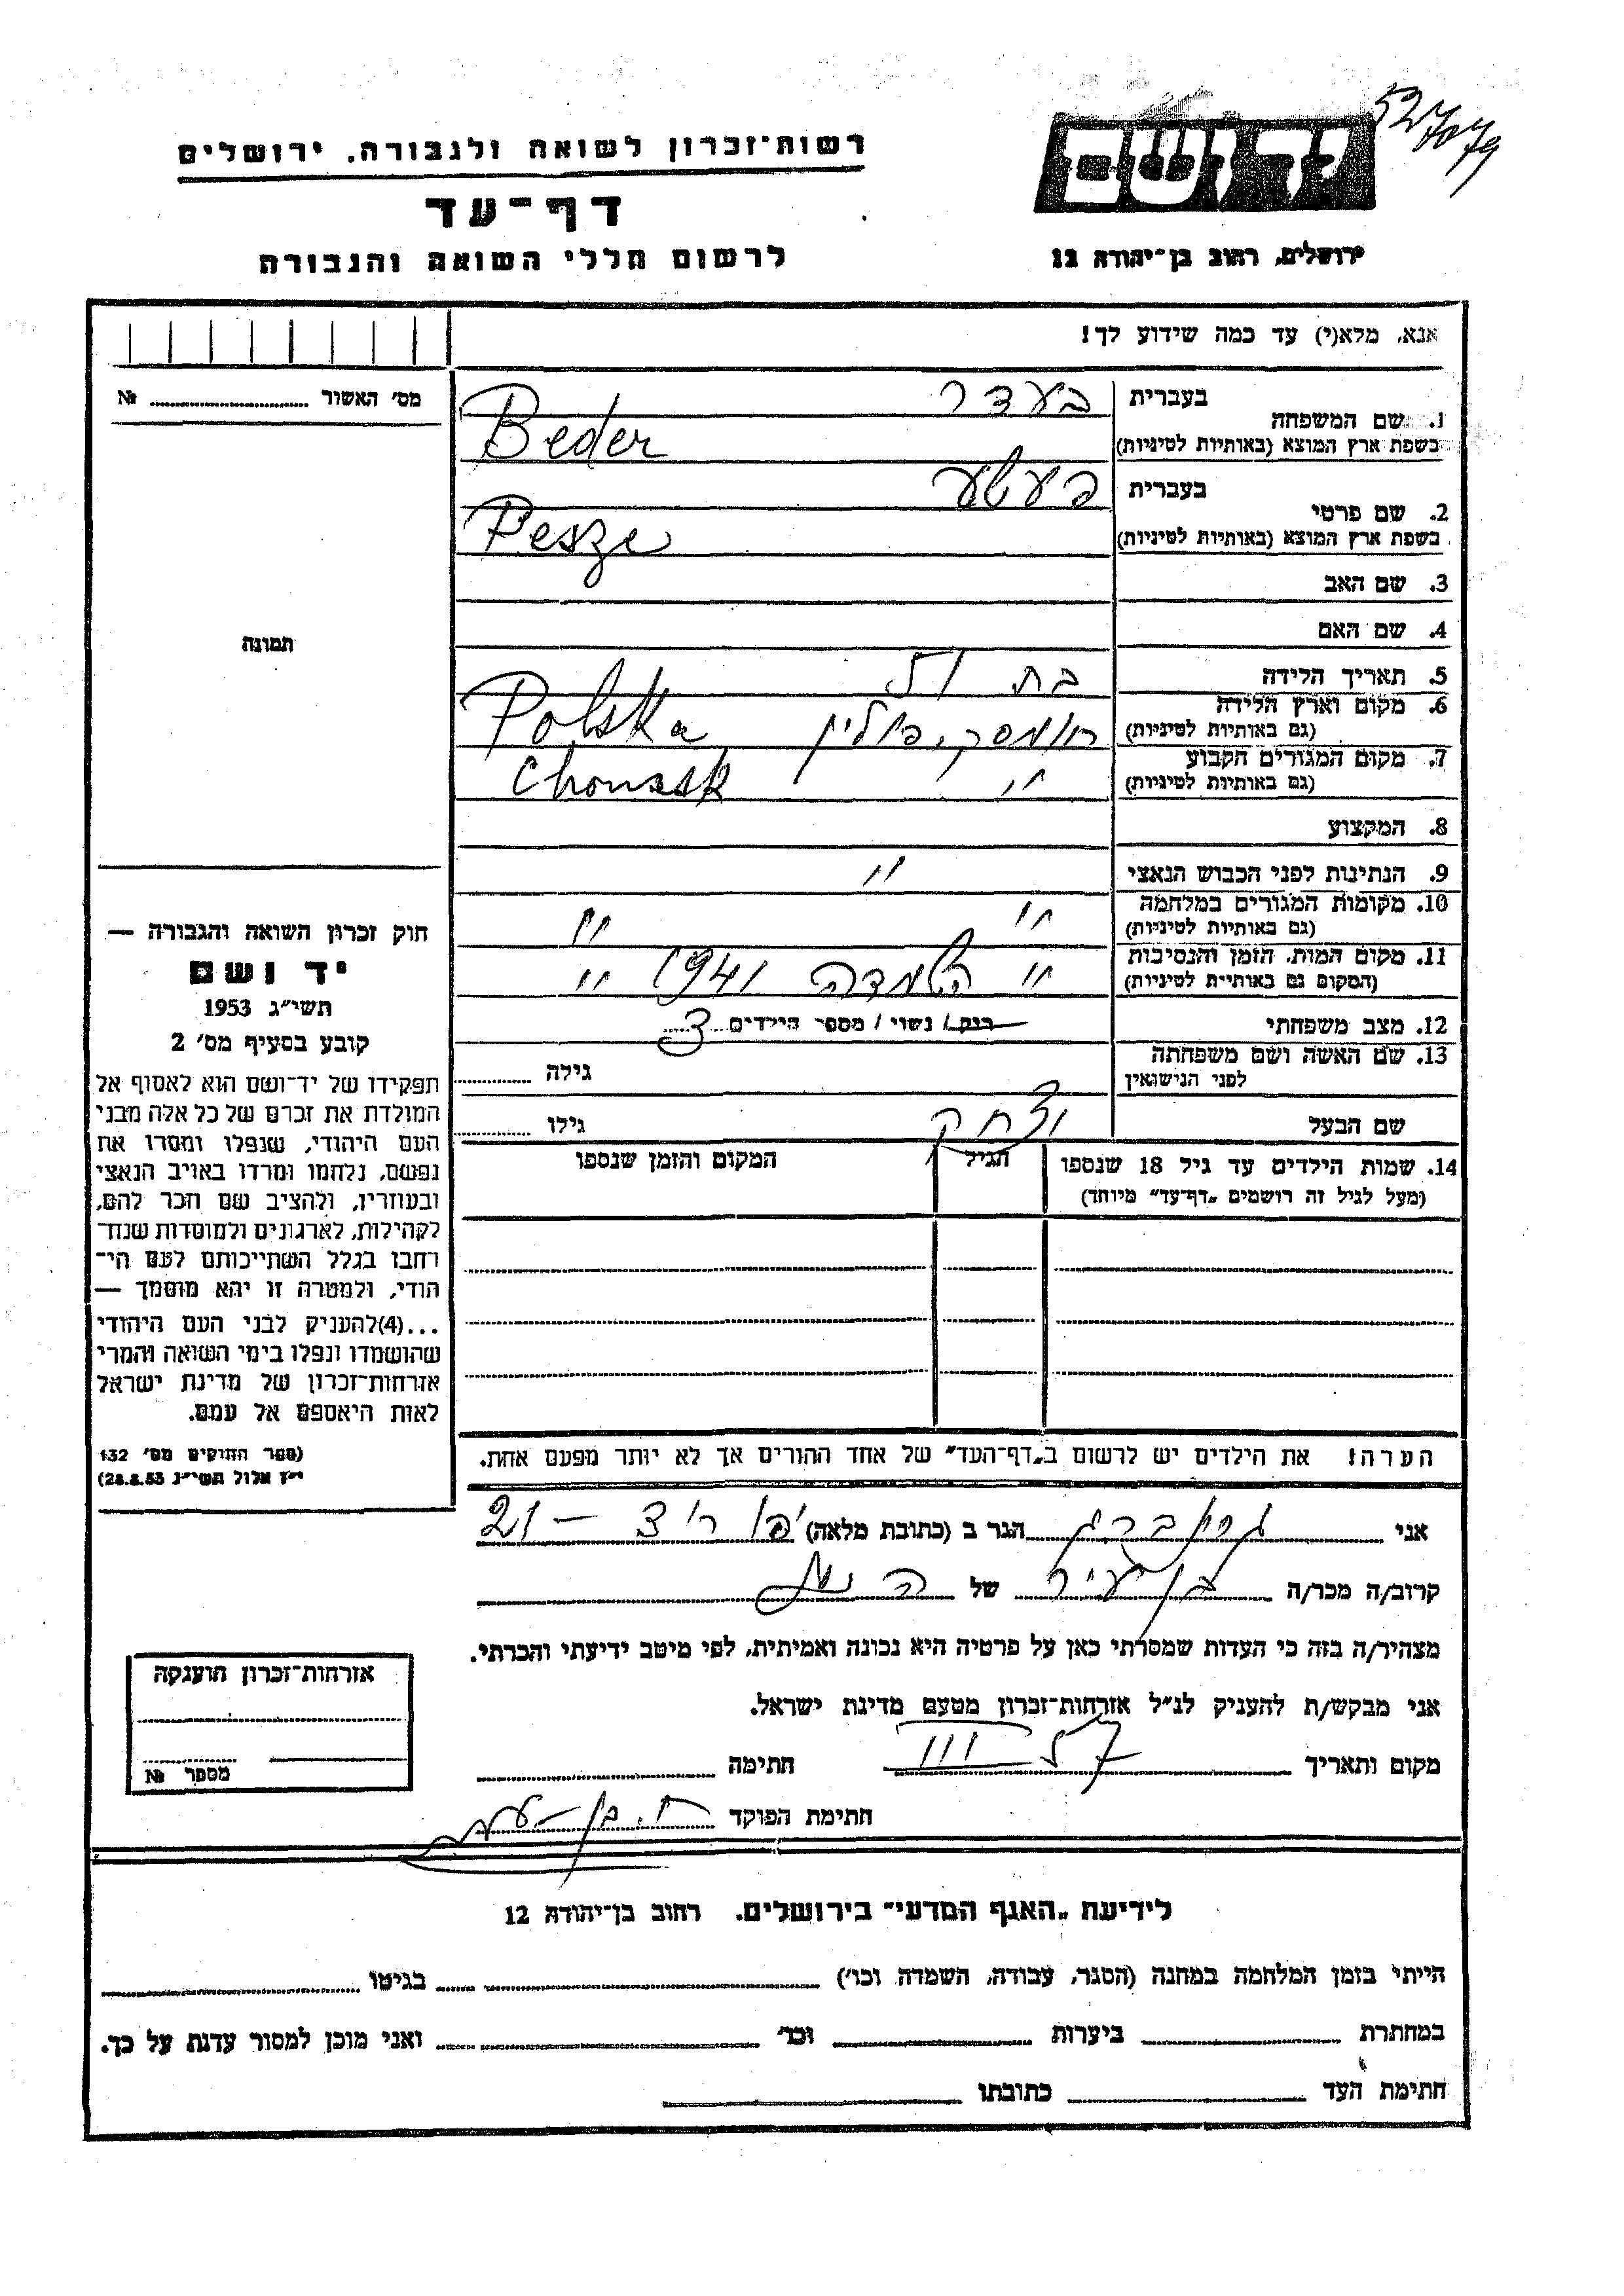 רשות־זכרון לשואה ולגבורה, ירושלים
דף־עד
לרשום חללי השואה והגבורה
יד ושם
ירושלים, רחוב בן־יהודה 12
אנא, מלא(י) עד כמה שידוע לך!
מס' האשור № 
1. שם המשפחה בעברית בעדר
בשפת ארץ המוצא (באותיות לטיניות) Beder
2. שם פרטי בעברית פעשע
בשפת ארץ המוצא (באותיות לטיניות) Pesze
3. שם האב
4. שם האם
תמונה
5. תאריך הלידה בת 51
6. מקום וארץ הלידה (גם באותיות לטיניות) חומסק, פולין Polska
7. מקום המגורים הקבוע (גם באותיות לטיניות) " Chomsk
8. המקצוע
9. הנתינות לפני הכבוש הנאצי "
10. מקומות המגורים במלחמה (גם באותיות לטיניות) " "
11. מקום המות, הזמן והנסיבות (המקום גם באותיות לטיניות) " השמדה 1941 "
12. מצב משפחתי רוק / נשוי / מספר הילדים 3
13. שם האשה ושם משפחתה לפני הנישואין גילה
שם הבעל יצחק גילו
14. שמות הילדים עד גיל 18 שנספו הגיל המקום והזמן שנספו
(מעל לגיל זה רושמים „דף־עד” מיוחד)
הערה! את הילדים יש לרשום ב„דף־העד” של אחד ההורים אך לא יותר מפעם אחת.
חוק זכרון השואה והגבורה —
יד ושם
תשי"ג 1953
קובע בסעיף מס' 2
תפקידו של יד־ושם הוא לאסוף אל
המולדת את זכרם של כל אלה מבני
העם היהודי, שנפלו ומסרו את
נפשם, נלחמו ומרדו באויב הנאצי
ובעוזריו, ולהציב שם וזכר להם,
לקהילות, לארגונים ולמוסדות שנח־
רבו בגלל השתייכותם לעם הי־
הודי, ולמטרה זו יהא מוסמך —
...(4)להעניק לבני העם היהודי
שהושמדו ונפלו בימי השואה והמרי
אזרחות־זכרון של מדינת ישראל
לאות היאספם אל עמם.
(ספר החוקים מס' 132
י"ז אלול תשי"ג 28.8.53)
אני גרינברג הגר ב (כתובת מלאה) 21 —
קרוב/ה מכר/ה בן עיר של
מצהיר/ה בזה כי העדות שמסרתי כאן על פרטיה היא נכונה ואמיתית, לפי מיטב ידיעתי והכרתי.
אני מבקש/ת להעניק לנ"ל אזרחות־זכרון מטעם מדינת ישראל.
מקום ותאריך III 57 חתימה
חתימת הפוקד
אזרחות־זכרון הוענקה
מספר №
לידיעת „האגף המדעי” בירושלים, רחוב בן־יהודה 12
הייתי בזמן המלחמה במחנה (הסגר, עבודה, השמדה וכו') בגיטו
במחתרת ביערות וכו' ואני מוכן למסור עדות על כך.
חתימת העד כתובתו